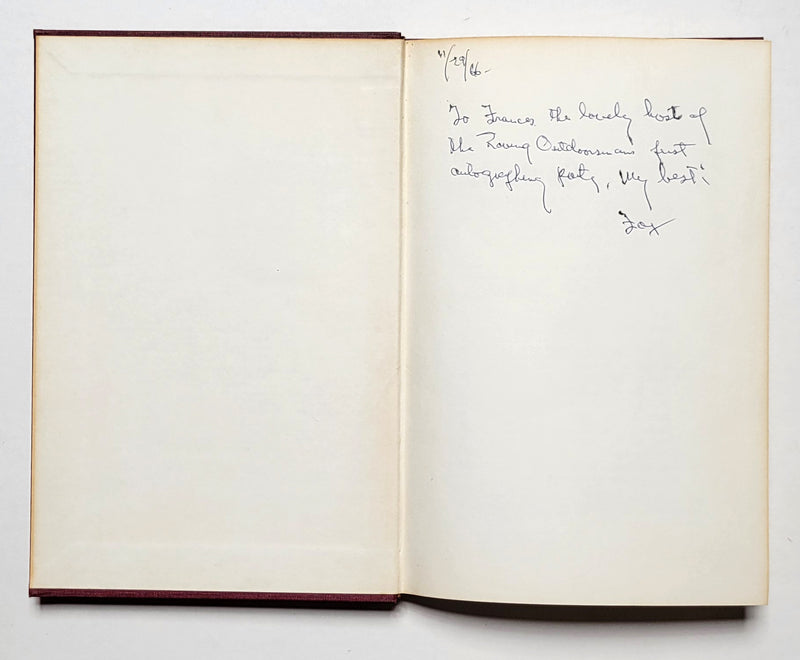 11/29/66-
To Frances the lovely host of
the Roving Outdoorsman's first
autographing party, My best!
Fox